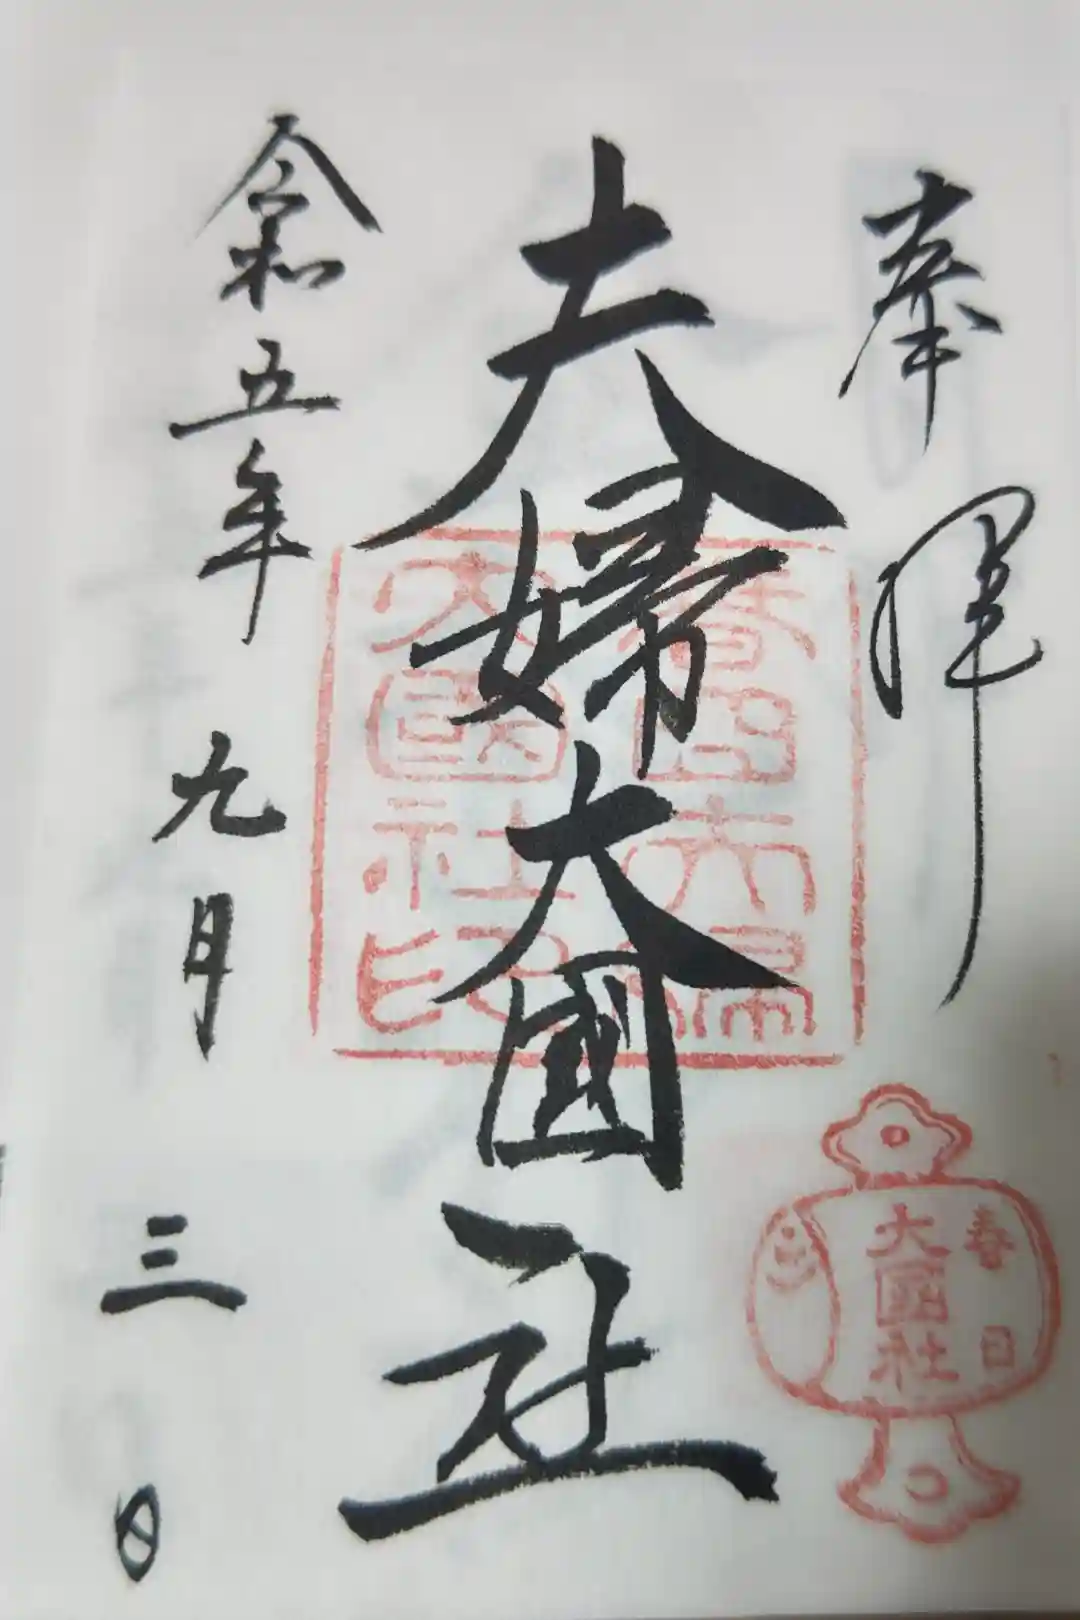 奉拝
夫婦大國社
令和五年九月三日
春日夫婦
大國社印
春日
大國社